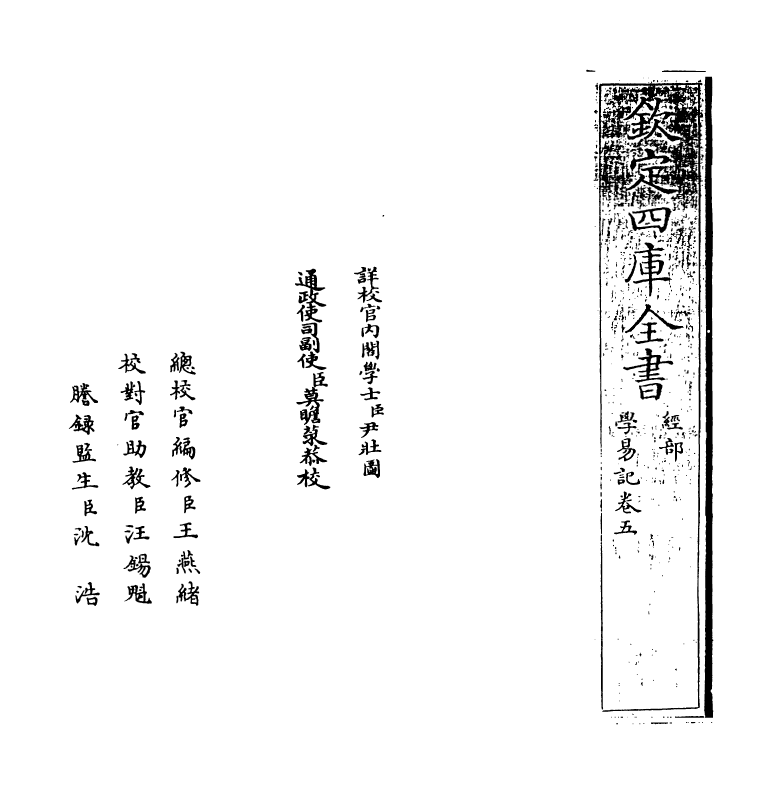 欽定四庫全書
經部
學易記卷五
詳校官內閣學士臣尹壯圖
通政使司副使臣莫瞻菉恭校
總校官編修臣王燕緒
校對官助教臣汪錫魁
謄錄監生臣沈浩